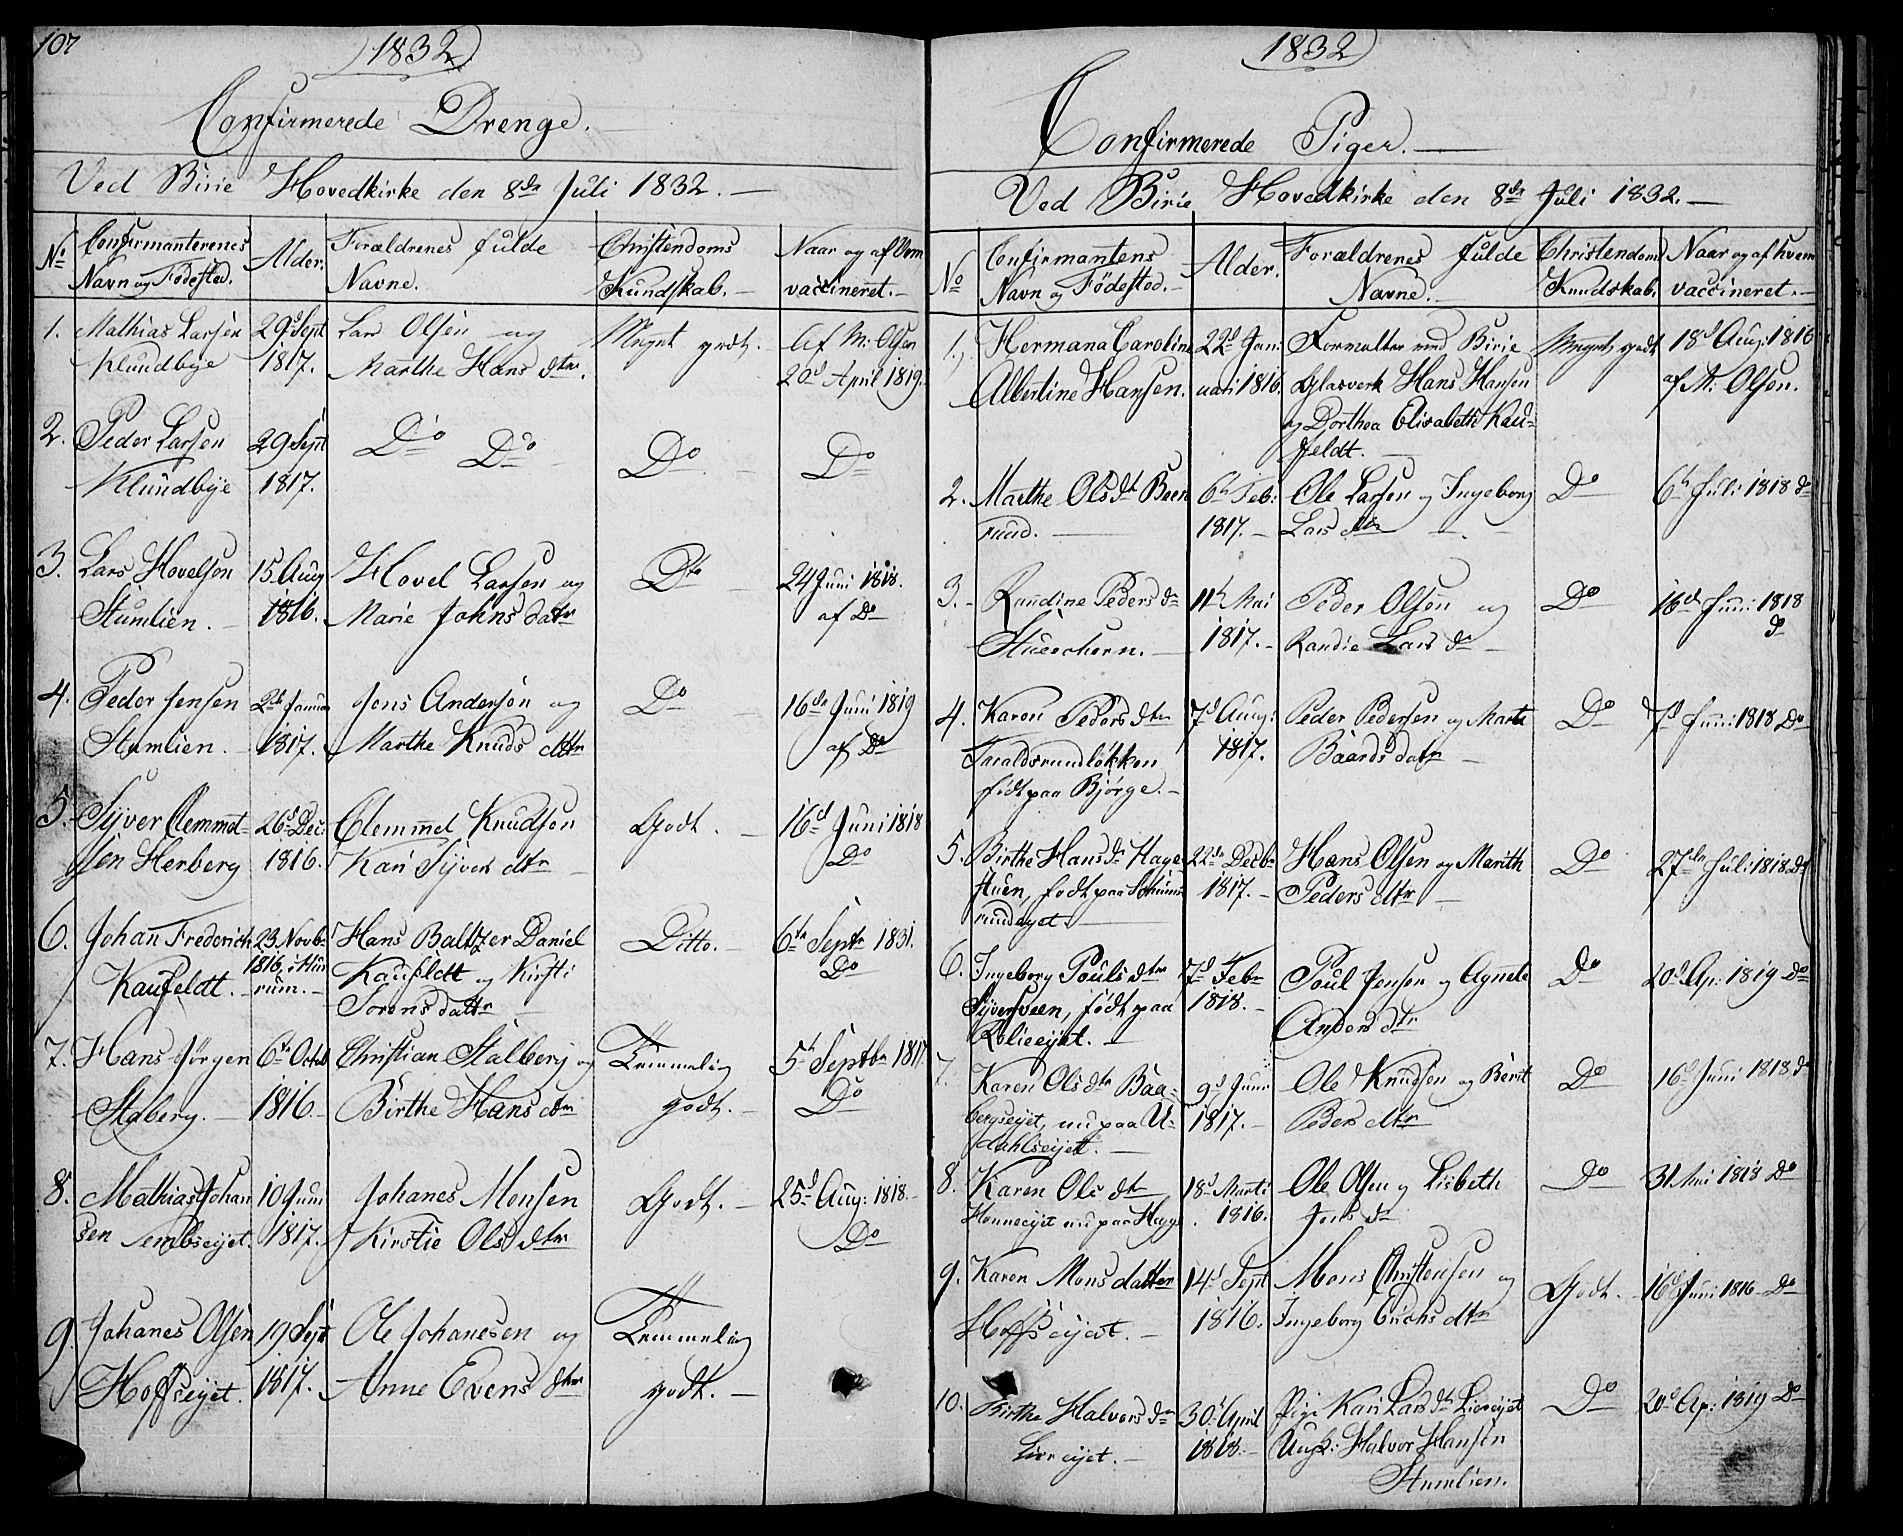 107
1832
Confirmerede Drenge.
Ved Birie Hovedkirke den 8de Juli 1832.
No
Confirmanterenes
Navn og Fødested.
Alder.
Forældrenes fulde
Navne.
Christendoms
Kundskab.
Naar og af Hvem
vaccineret.
1. Mathias Larsen
Klundbye
29d Sept
1817.
Lars Olsen og
Marthe Hans dtr.
Meget godt.
Af M. Olsen
20d April 1819.
2. Peder Larsen
Klundbye
29 Sept
1817.
Do Do
Do
Do
3. Lars Hovelsen
Stumlien.
15 Aug
1816.
Hovel Larsen og
Marie Johns datr
Do
24 Juni 1818.
af Do
4. Peder Jensen
Stumlien.
2de Januar
1817.
Jens Andersen og
Marthe Knuds dtr
Do
16de Juni 1819
af Do
5. Syver Clemmet-
sen Herberg
26d Dec:
1816.
Clemmed Knudsen
Kari Syvers dtr
Godt.
16d Juni 1818
Do
6. Johan Frederich
Kaufeldt.
23 Novbr
1816, i Hur
rum.
Hans Baltzer Daniel
Kaufeldt og Kirsti
Torens datr
Ditto.
6te Septr 1831.
Do
7. Hans Jørgen
Staberg.
6te Octob
1816
Christian Stalberg og
Birthe Hans dtr
Temmelig
godt.
5te Septbr 1817
Do
8. Mathias Johan
sen Sembseijet.
10 Juni
1817.
Johanes Monsen
Kirstie Ols dtr
Godt.
25d Aug: 1818.
Do
9. Johanes Olsen
Hoffseijet.
19 Sept
1817.
Ole Johanesen og
Anne Evens dtr
Temmelig
godt.
1832
Confirmerede Piger.
Ved Birie Hovedkirke den 8de Juli 1832.
No
Confirmantens
Navn og Födested.
Alder.
Forældrenes fulde
Navne.
Christendoms
Kundskab.
Naar og af hvem
vaccineret.
1. Hermana Caroline
Albertine Hansen.
22d Jan:
uari 1816.
Formalter ved Birie
Glasverk Hans Hansen
og Dorthea Elisabeth Kau-
feldt.
Meget godt
18d Aug: 1816
af M: Olsen.
2. Marthe Olsdtr Been
rud.
6te Feb:
1817.
Ole Larsen og Ingeborg
Lars dtr
Do
6te Juli 1818 do
3. Randine Peders dr
Stueschern.
11te Mai
1817.
Peder Olsen og
Randie Lars dr
Do
16d Juni 1818
do
4. Karen Peders dtr
Taraldsrundløkken
født paa Bjørge.
7d Aug:
1817.
Peder Pedersen og Marte
Baards datr
Do
7d Juni 1818 Do
5. Birthe Hans dr Hage
stuen, født paa Schums
rundeyet.
22de Decbr
1817.
Hans Olsen og Marith
Peders dtr
Do
27de Juli 1818 Do
6. Ingeborg Pouls dtr
Syversveen, født paa
Rolieeijet.
7d Febr
1818.
Poul Jensen og Agnete
Anders dtr
Do
20d Ap: 1819 Do
7. Karen Ols dtr Baa-
bergseijet, nu paa U-
dahlseijet.
9d Juni
1817.
Ole Knudsen og Berit
Peders dtr
Do
16d Juni 1818 do
8. Karen Ols dtr
Honneeijet nu paa Hage
18d Marti
1816.
Ole Olsen og Lisbeth
Jons dr
Do
31 Mai 1818 Do
9. Karen Mons datter
Hoffseijet.
14d Sept
1816.
Mons Christensen og
Ingeborg Erichs dtr
Godt.
16d Juni 1816 Do
10. Birthe Halvors dr
Lierseijet.
30d April
1818.
Pige Kari Lars dtr Liereijet
Ungk: Halvor Hansen
Stumlien.
Do
20d Ap: 1819 Do